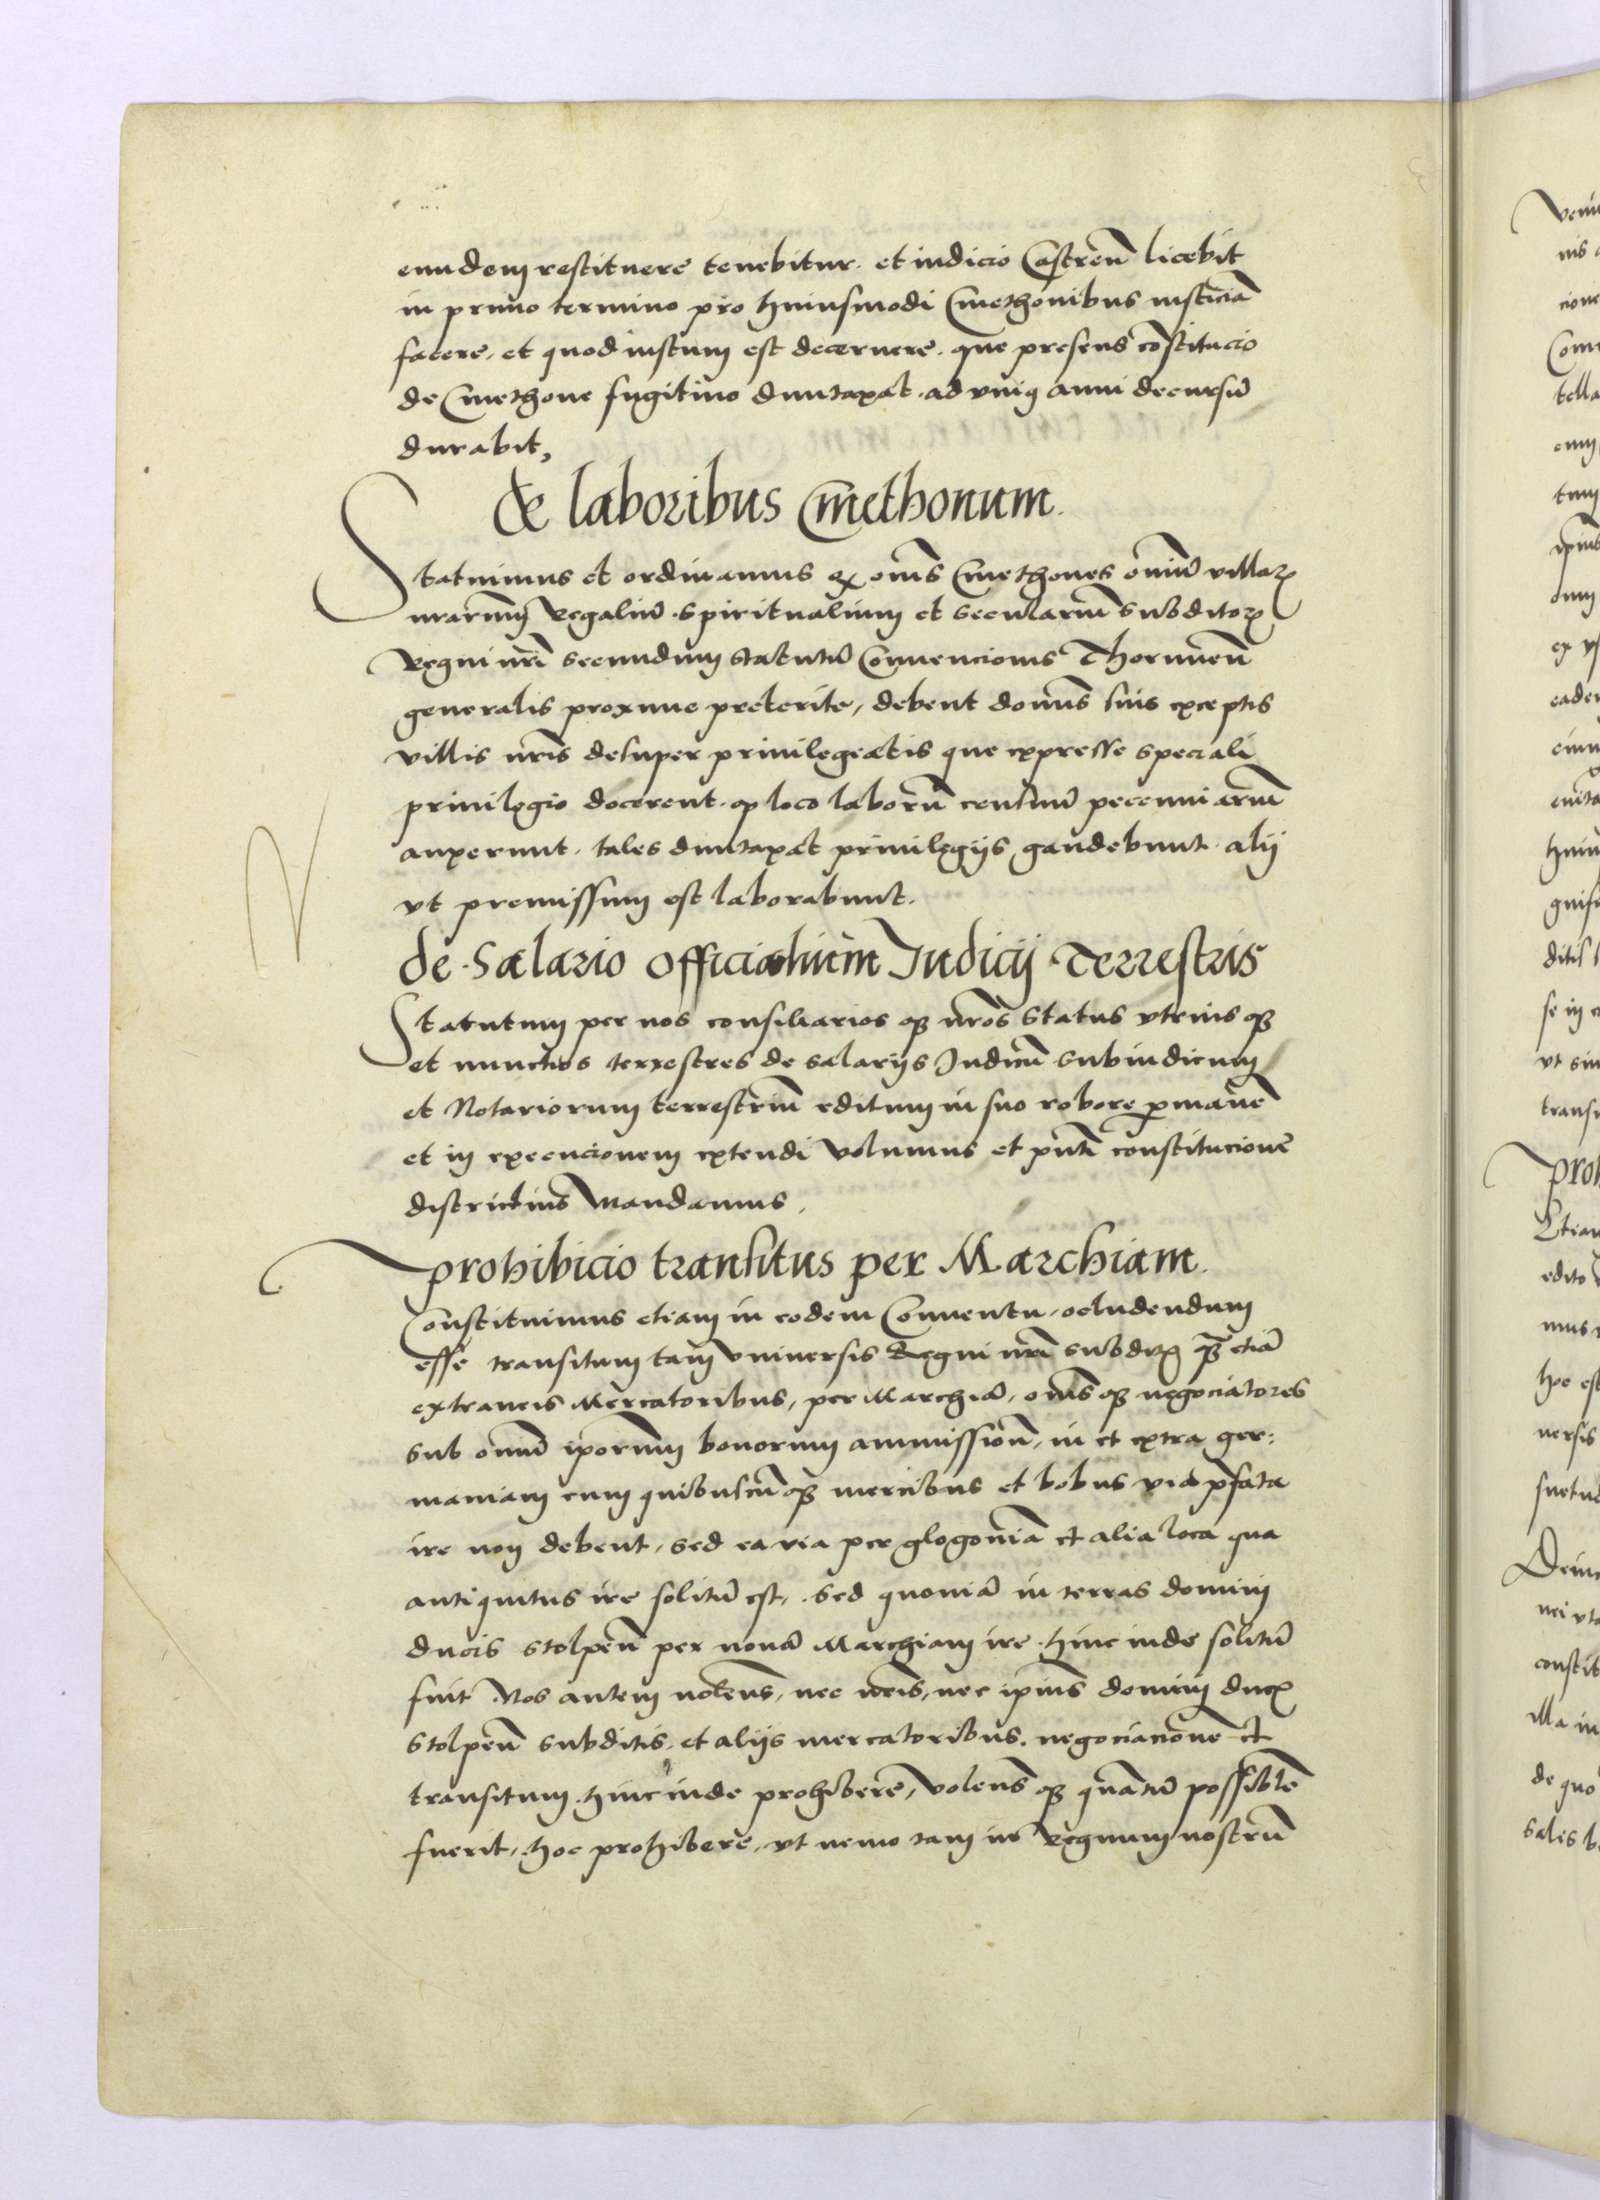 eundem restituere tenebitur. et iudicio Castreñ licebit
in primo termino pro huiusmodi Cmethonibus iusticiã
facere, et quod iustum est decernere. que presens cõstitucio
de Cmethone fugitiuo duntaxat. ad vniꝯ anni decursũ
durabit,
De laboribus Cmethonum.
Statuimus et ordinamus qꝫ om̃s Cmethones om̃iũ villaꝝ
nrarum̃ Regaliũ. spiritualium et seculariũ subditoꝝ
Regni nr̃i secundum statutũ Conuencionis Thoruneñ
generalis proxime preterite, debent dom̃s suis exceptis
villis nr̃is desuper priuilegeatis que expresse speciali
priuilegio docerent. qꝫ loco laborũ censuũ pecuniarũ
auxerunt. tales duntaxat priuilegijs gaudebunt. alij
vt premissum est laborabunt.
de Salario officialium Iudicij Terrestris
Statutum per nos consiliarios qꝫ nr̃os status vtrius qꝫ
et nunctios terrestres de salarijs Iudicũ subiudicum
et Notariorum terrestriũ editum in suo robore ꝑmanẽ
et in execucionem extendi volumus et pñti constitucionẽ
districtius mandamus.
prohibicio transitus per Marchiam.
Constituimus etiam in eodem Conuentu. ocludendum
esse transitum tam vniuersis Regni nr̃i subditꝭ qꝫ etiã
extraneis Mercatoribus, per Marchiã, om̃s qꝫ negociatores
sub om̃iũ ip̃orum bonorum ammissionẽ, in et extra ger:
maniam cum quibuscũ qꝫ mercibus et bobus via p̃fata
ire non debent, sed ea via per glogouiã et alia loca qua
antiquitus ire solitũ est,. sed quoniã in terras domini
ducis stolpeñ per nouã Marchiam ire. hinc inde solitũ
fuit Nos autem nolẽns, nec nr̃is, nec ip̃ius domini ducꝭ
stolpeñ subditis, et alijs mercatoribus. negociacionẽ et
transitum. hinc inde prohibere, volens qꝫ quantũ possiblẽ
fuerit, hoc prohibere, vt nemo tam in Regnum nostrũ